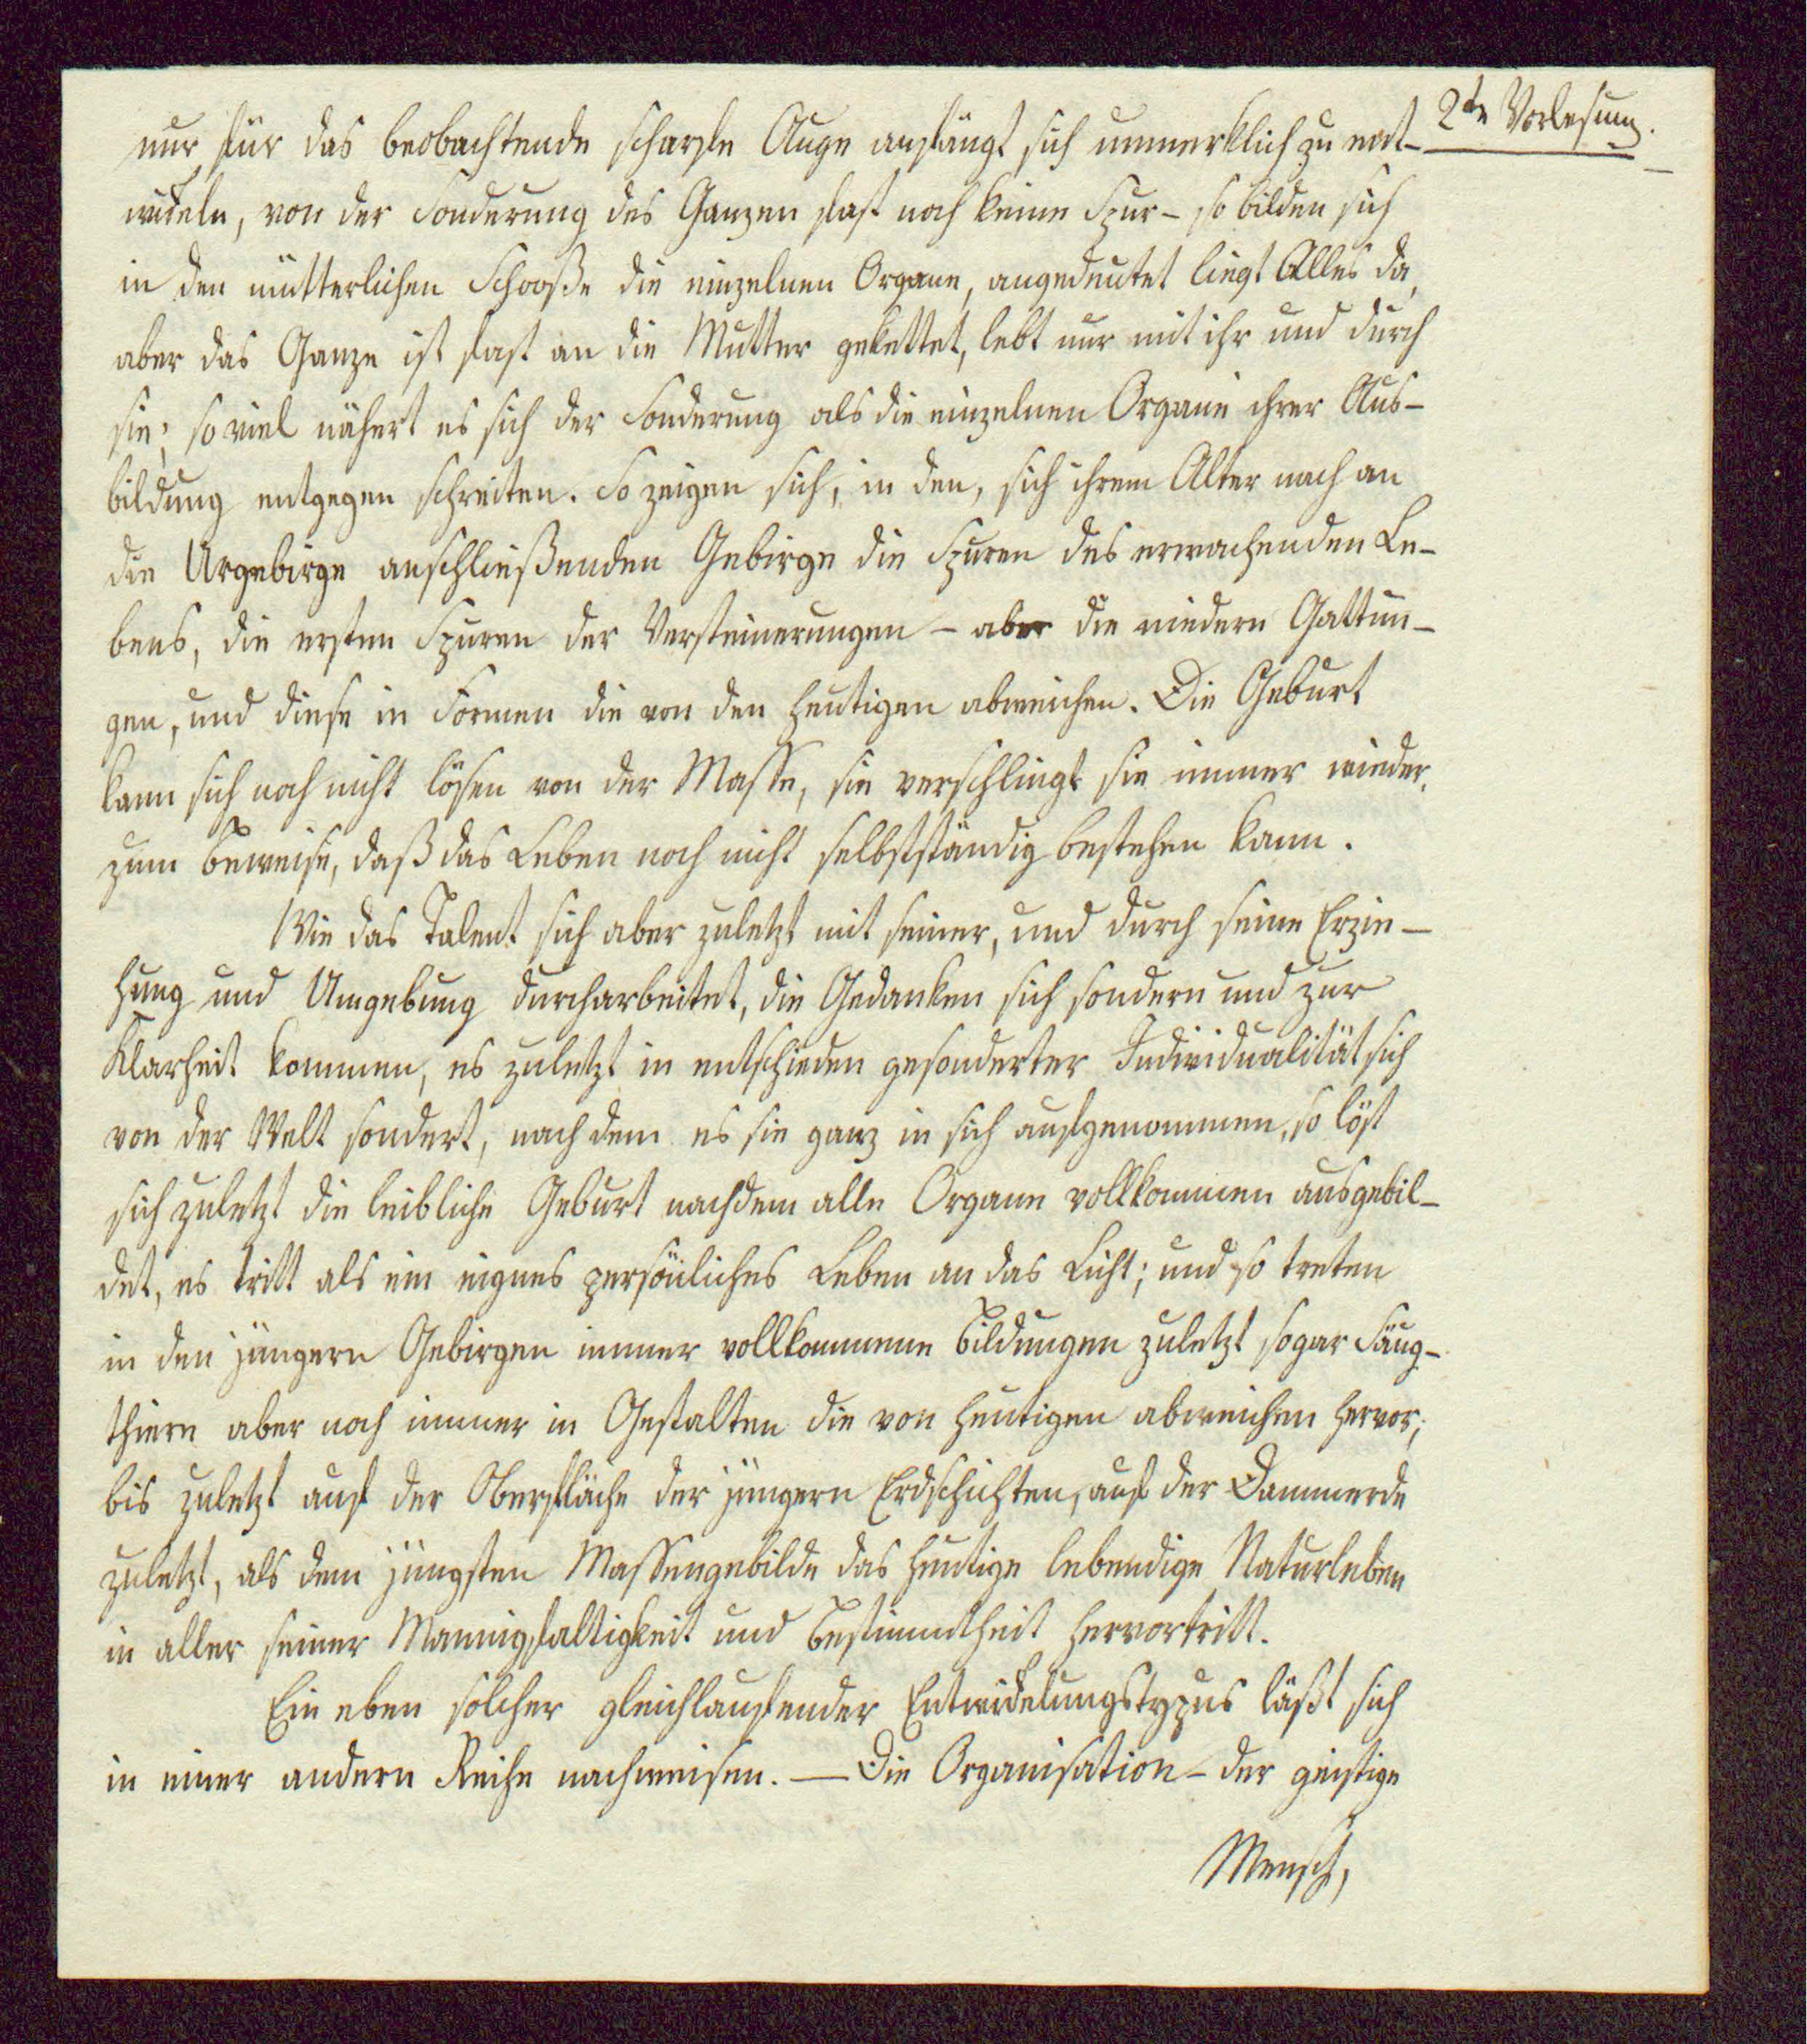 2te Vorlesung.
nur für das beobachtende scharfe Auge anfängt sich unmerklich zu ent-
wickeln, von der Sonderung des Ganzen fast noch keine Spur - so bilden sich
in den mütterlichen Schooße die einzelnen Organe, angedeutet liegt Alles da,
aber das Ganze ist fast an die Mutter gekettet, lebt nur mit ihr und durch
sie; so viel nähert es sich der Sonderung als die einzelnen Organe ihrer Aus-
bildung entgegen schreiten. So zeigen sich, in den, sich ihrem Alter nach an
die Urgebirge anschließenden Gebirge die Spuren des erwachenden Le-
bens, die ersten Spuren der Versteinerungen - aber die niedern Gattun-
gen, und diese in Formen die von den heutigen abweichen. Die Geburt
kann sich noch nicht lösen von der Masse, sie verschlingt sie immer wieder,
zum Beweise, daß das Leben noch nicht selbstständig bestehen kann.
Wie das Talent sich aber zuletzt mit seiner, und durch seine Erzie-
hung und Umgebung durcharbeitet, die Gedanken sich sondern und zur
Klarheit kommen, es zuletzt in entschieden gesonderter Individualität sich
von der Welt sondert, nach dem es sie ganz in sich aufgenommen, so löst
sich zuletzt die leibliche Geburt nachdem alle Organe vollkommen ausgebil-
det, es tritt als ein eignes persönliches Leben an das Licht; und so treten
in den jüngern Gebirgen immer vollkommene Bildungen zuletzt sogar Säug-
thiere aber noch immer in Gestalten die von heutigen abweichen hervor;
bis zuletzt auf der Oberfläche der jüngern Erdschichten, auf der Dammerde
zuletzt, als dem jüngsten Massengebilde das heutige lebendige Naturleben
in aller seiner Mannigfaltigkeit und Bestimmtheit hervortritt.
Ein eben solcher gleichlaufender Entwickelungstypus läßt sich
in einer andern Reihe nachweisen. — Die Organisation - der geistige
Mensch,